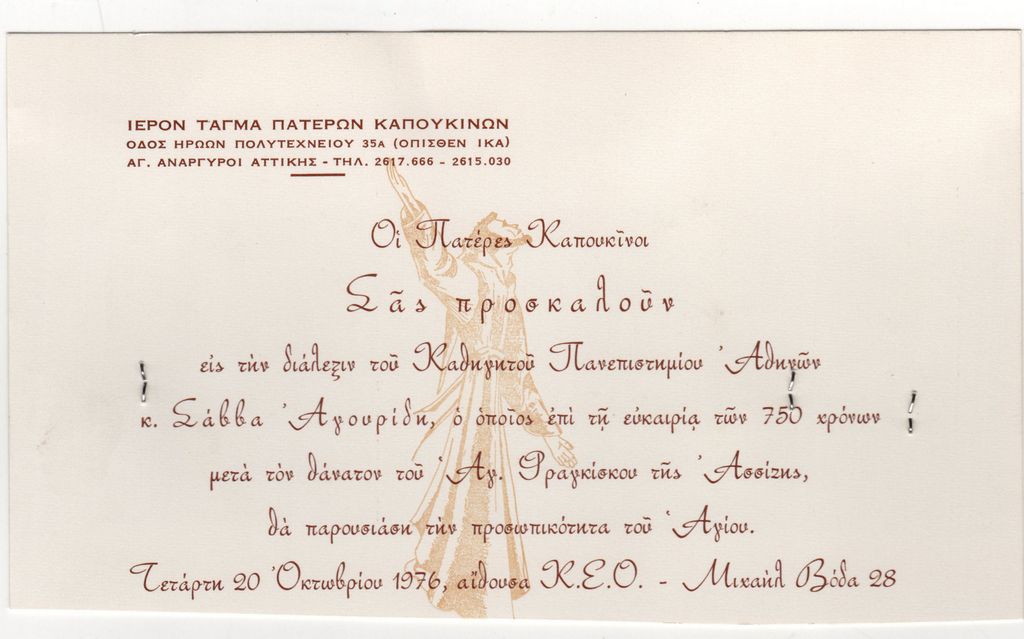 ΙΕΡΟΝ ΤΑΓΜΑ ΠΑΤΕΡΩΝ ΚΑΠΟΥΚΙΝΩΝ
ΟΔΟΣ ΗΡΩΩΝ ΠΟΛΥΤΕΧΝΕΙΟΥ 35Α (ΟΠΙΣΘΕΝ ΙΚΑ)
ΑΓ. ΑΝΑΡΓΥΡΟΙ ΑΤΤΙΚΗΣ - ΤΗΛ. 2617.666 - 2615.030
Οἱ Πατέρες Καπουκῖνοι
Σᾶς προσκαλοῦν
εἰς τὴν διάλεξιν τοῦ Καθηγητοῦ Πανεπιστημίου Ἀθηνῶν
κ. Σάββα Ἀγουρίδη, ὁ ὁποῖος ἐπὶ τῇ εὐκαιρίᾳ τῶν 750 χρόνων
μετὰ τὸν θάνατον τοῦ Ἁγ. Φραγκίσκου τῆς Ἀσσίζης,
θὰ παρουσιάσῃ τὴν προσωπικότητα τοῦ Ἁγίου.
Τετάρτη 20 Ὀκτωβρίου 1976, αἴθουσα Κ.Ε.Ο. - Μιχαὴλ Βόδα 28